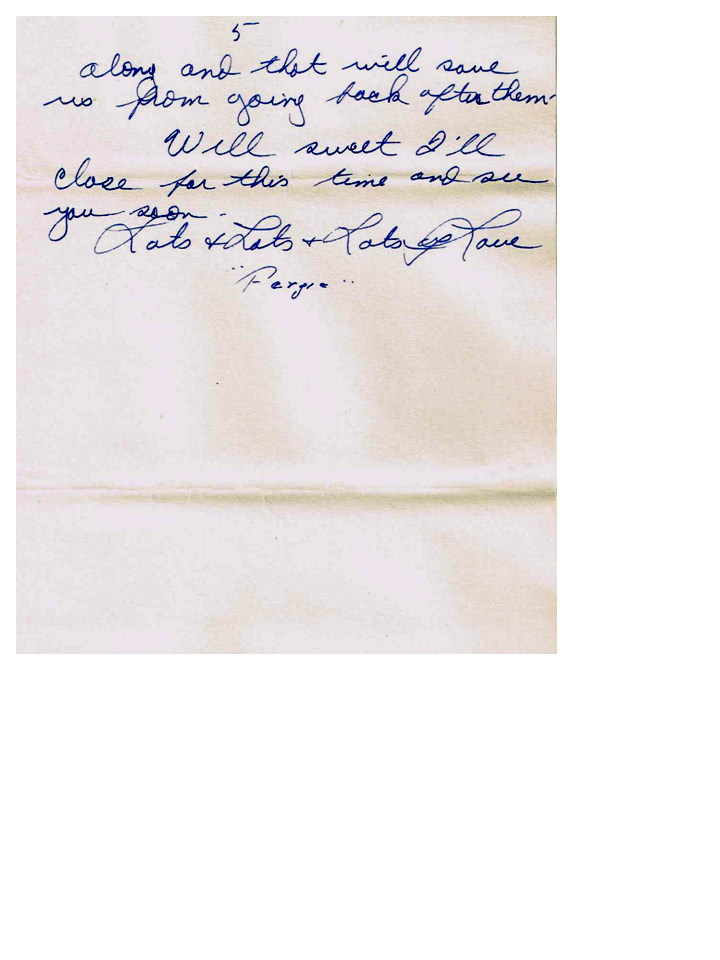 5
along and that will save
us from going back after them-
Will sweet I'll
close for this time and see
you soon.
Lots & Lots & Lots of Love
"Fergie"